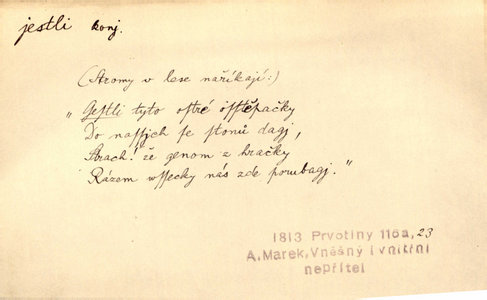 jestli konj.
(Stromy v lese naříkají:)
„Gestli tyto ostré ósstěpačky
Do nassich se stonů dagj,
Strach! že genom z hračky
Rázem wssecky nás zde porubagj."
1813 Prvotiny 116a, 23
A. Marek, Vněšný i vnitřní
nepřítel